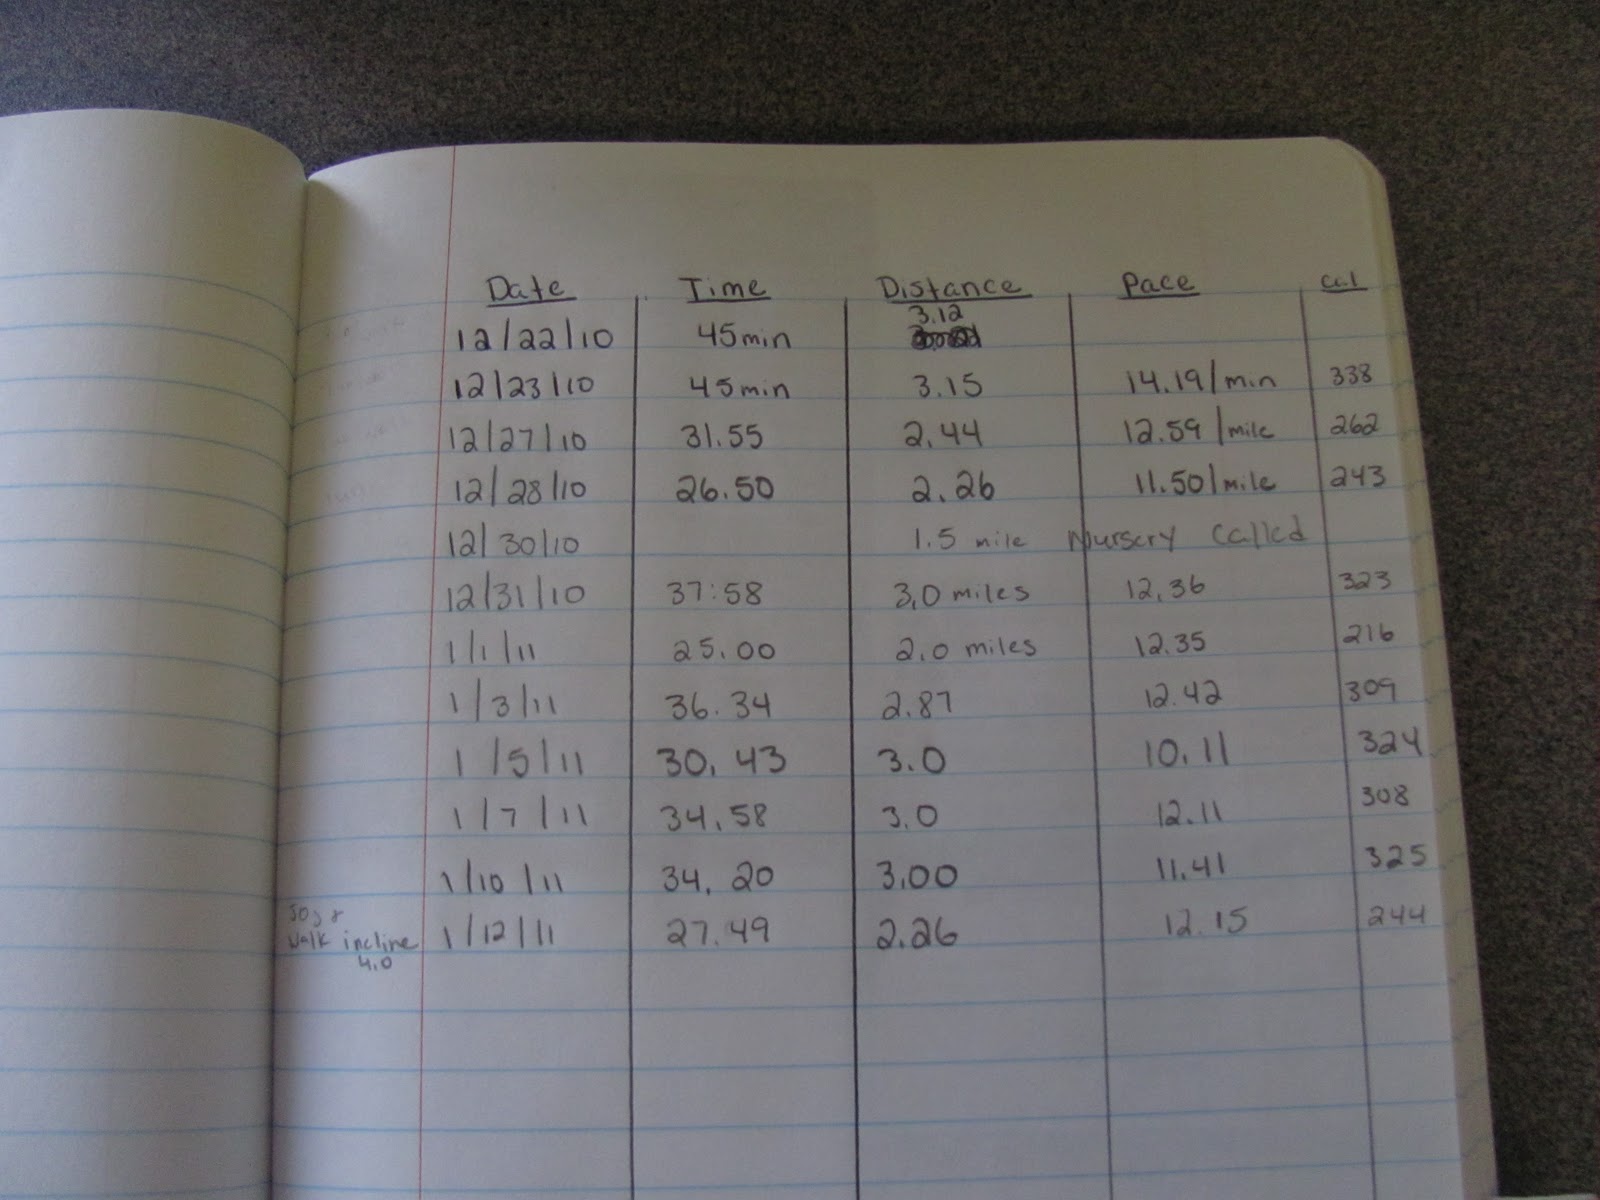 Date Time Distance Pace Cal
12/22/10 45min 3.12
12/23/10 45min 3.15 14.19/min 338
12/27/10 31.55 2.44 12.59/mile 262
12/28/10 26.50 2.26 11.50/mile 243
12/30/10 1.5 mile Nursery called
12/31/10 37:58 3.0 miles 12.36 323
1/1/11 25.00 2.0 miles 12.35 216
1/3/11 36.34 2.87 12.42 309
1/5/11 30.43 3.0 10.11 324
1/7/11 34.58 3.0 12.11 308
1/10/11 34.20 3.00 11.41 325
Jog &
walk incline 1/12/11 27.49 2.26 12.15 244
4.0